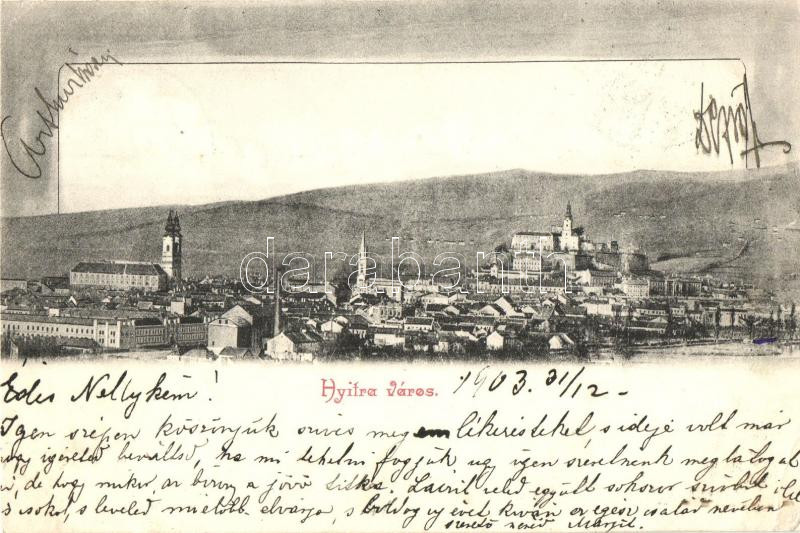 darabanth.com
Nyitra város.
1903. 31/12 -
Édes Nellykém!
Igen szépen köszönjük szíves meg em lékezésteket s ideje volt már
hogy ígéreted beváltsd, ha mi tehetni fogjuk ugy igen szeretnénk meglátogat
ni, de hogy mikor az bizony a jövő titka. Lacit veled együtt sokszor
csókol, s leveled mielőbb elvárja, s boldog uj évet kiván az egész család nevében
szerető nenéd Margit.